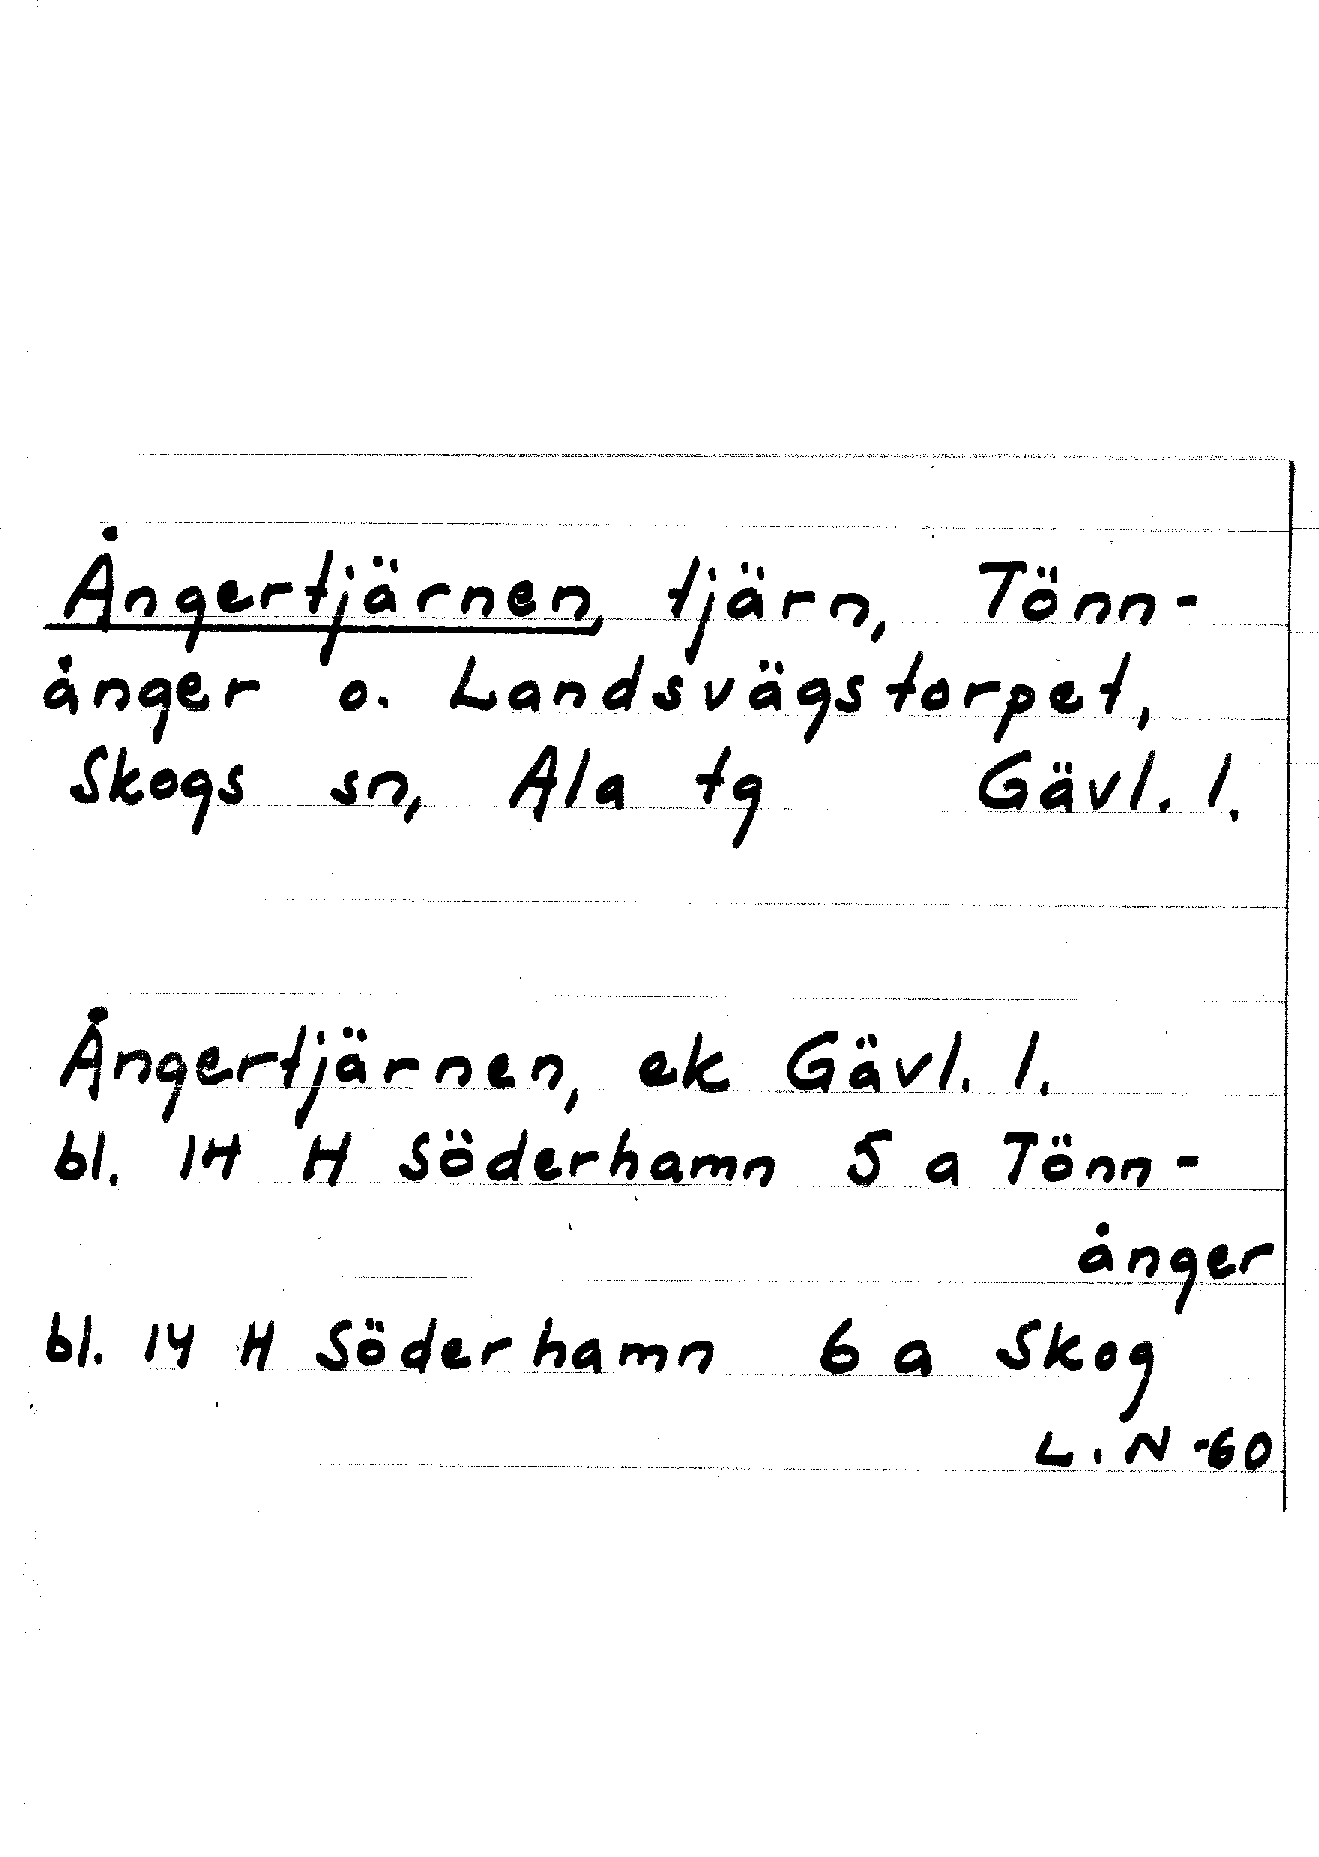 Ångertjärnen, tjärn, Tönn-
ånger o. Landsvägstorpet,
Skogs sn, Ala tg Gävl. l.
Ångertjärnen, ek Gävl. l.
bl. 14 H Söderhamn 5 a Tönn-
ånger
bl. 14 H Söderhamn 6 a Skog
L. N -60